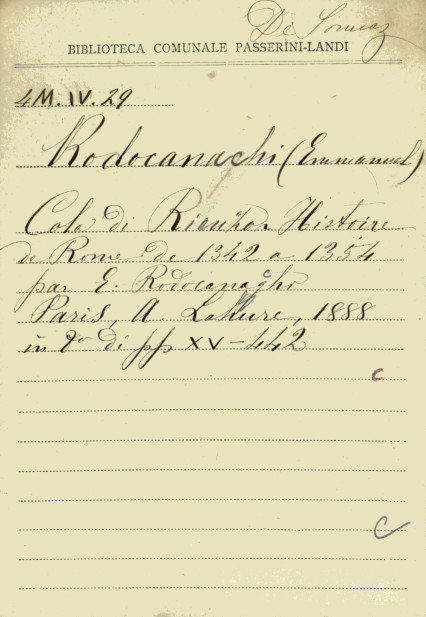 De
BIBLIOTECA COMUNALE PASSERINI-LANDI
4M.IV.29
Rodocanachi (Emmanuel)
Cola di Rienzo. Histoire
de Rome de 1342 a 1354
par E. Rodocanachi
Paris, A. Lahure, 1888
in 8º di pp XV-442
c
C